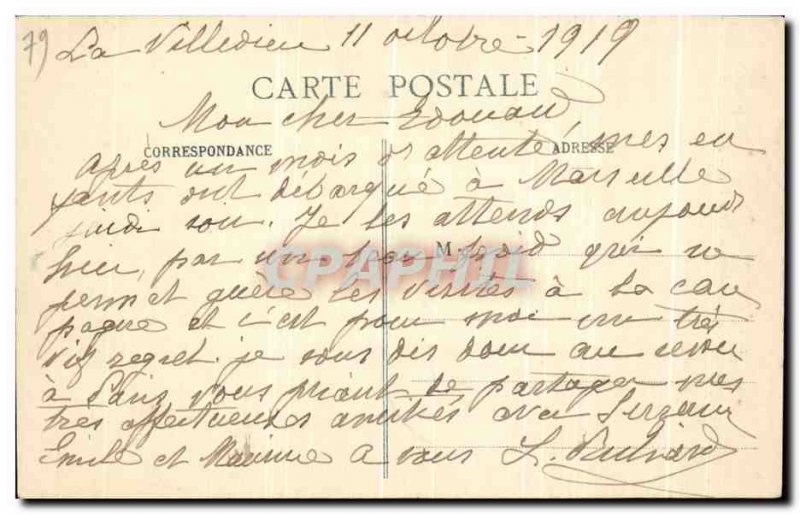 79 La Villedieu 11 octobre 1919
CARTE POSTALE
Mon cher Edouard,
CORRESPONDANCE ADRESSE
Après un mois d'attente, mes en
fants ont débarqué à Marseille
jeudi soir. Je les attends aujourd
hui, par un M froid qui ne
CPAPHIL
permet guère les visites à la cam
pagne et c'est pour moi un très
vif regret. je vous dis donc au revoir
à Paris vous priant de partager mes
très affectueuses amitiés avec
Emile et Maxime A vous L.